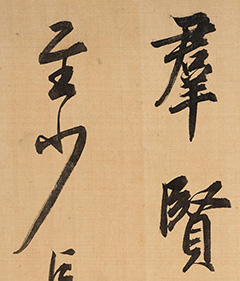 羣賢
至少